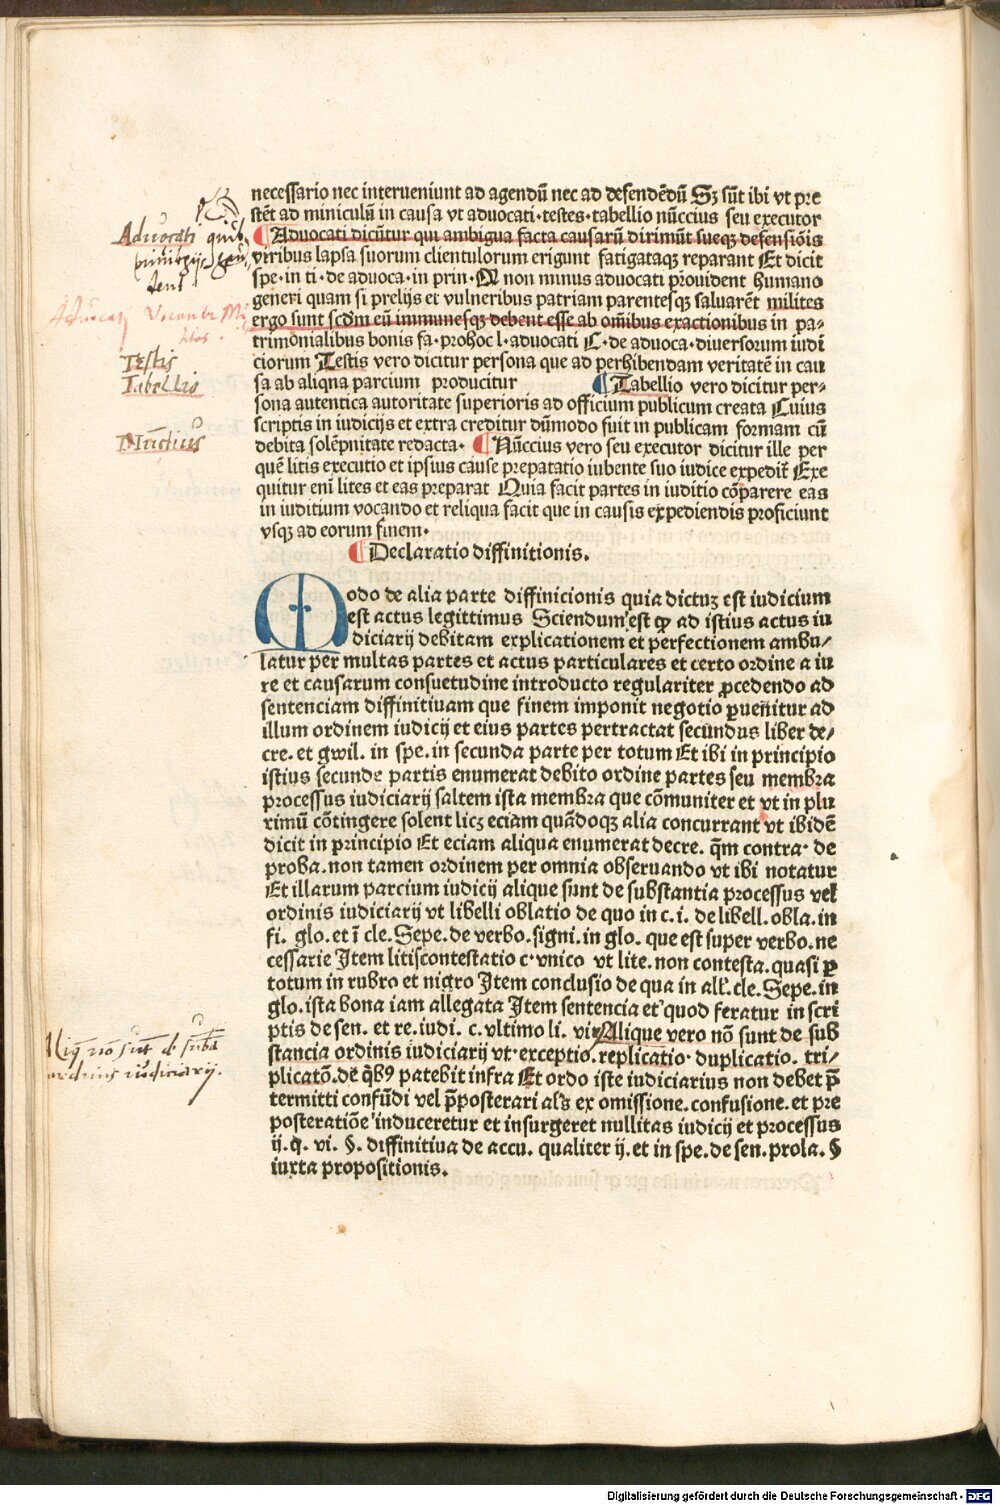 necessario nec interueniunt ad agendū nec ad defendēdū Sꝫ sūt ibi vt pre
stēt ad miniculū in causa vt aduocati·testes·tabellio nūccius seu executor
Aduocati dicūtur qui ambigua facta causarū dirimūt sueqꝫ defensiōis
viribus lapsa suorum clientulorum erigunt fatigataqꝫ reparant Et dicit
spe·in ti·de aduoca·in prin·Qꝛ non minus aduocati p̄rouident humano
generi quam si prelijs et vulneribus patriam parentesqꝫ saluarēt milites
ergo sunt scdm eū immunesqꝫ debent esse ab om̄ibus exactionibus in pa⸗
trimonialibus bonis fa·prohoc l·aduocati C·de aduoca·diuersorum iudi
ciorum Testis vero dicitur persona que ad perhibendam veritatē in cau
sa ab aliqna parcium producitur Tabellio vero dicitur per⸗
sona autentica autoritate superioris ad officium publicum creata Cuius
scriptis in iudicijs et extra creditur dūmodo fuit in publicam formam cū
debita solēpnitate redacta· Nūccius vero seu executor dicitur ille per
quē litis executio et ipsius cause prepatatio iubente suo iudice expedit̄ Exe
quitur eni lites et eas preparat Quia facit partes in iuditio cōparere eas
in iuditium vocando et reliqua facit que in causis expediendis proficiunt
vsqꝫ ad eorum finem·
Declaratio diffinitionis.
Modo de alia parte diffinicionis quia dictuꝫ est iudicium
est actus legittimus Sciendum est ꝙ ad istius actus iu
diciarij debitam explicationem et perfectionem ambu⸗
latur per multas partes et actus particulares et certo ordine a iu
re et causarum consuetudine introducto regulariter ꝓcedendo ad
sentenciam diffinitiuam que finem imponit negotio ꝑuenitur ad
illum ordinem iudicij et eius partes pertractat secundus liber de⸗
cre. et gwil. in spe. in secunda parte per totum Et ibi in principio
istius secunde partis enumerat debito ordine partes seu membra
processus iudiciarij saltem ista membra que cōmuniter et vt in plu
rimū cōtingere solent licꝫ eciam quādoqꝫ alia concurrant vt ibidē
dicit in principio Et eciam aliqua enumerat decre. q̄m contra· de
proba. non tamen ordinem per omnia obseruando vt ibi notatur
Et illarum parcium iudicij alique sunt de substantia processus vel
ordinis iudiciarij vt libelli oblatio de quo in c. i. de libell. obla. in
fi. glo. et ī cle. Sepe. de verbo. signi. in glo. que est super verbo. ne
cessarie Item litiscontestatio c·vnico vt lite. non contesta. quasi ꝑ
totum in rubro et nigro Item conclusio de qua in all'. cle. Sepe. in
glo. ista bona iam allegata Item sentencia et quod feratur in scri
ptis de sen. et re. iudi. c. vltimo li. vi Alique vero nō sunt de sub
stancia ordinis iudiciarij vt·exceptio.replicatio·duplicatio. tri⸗
plicatō. de q̄bꝰ patebit infra Et ordo iste iudiciarius non debet p̄
termitti confūdi vel p̄posterari als ex omissione. confusione. et pre
posteratiōe induceretur et insurgeret nullitas iudicij et processus
ij. q. vi. §. diffinitiua de accu. qualiter ij. et in spe. de sen. prola. §
iuxta propositionis.
Aduocati
Testis
Tabellio
Nūctius
Aliq̄ nō sūt de suba
ordinis iudiciarij.
Digitalisierung gefördert durch die Deutsche Forschungsgemeinschaft - DFG